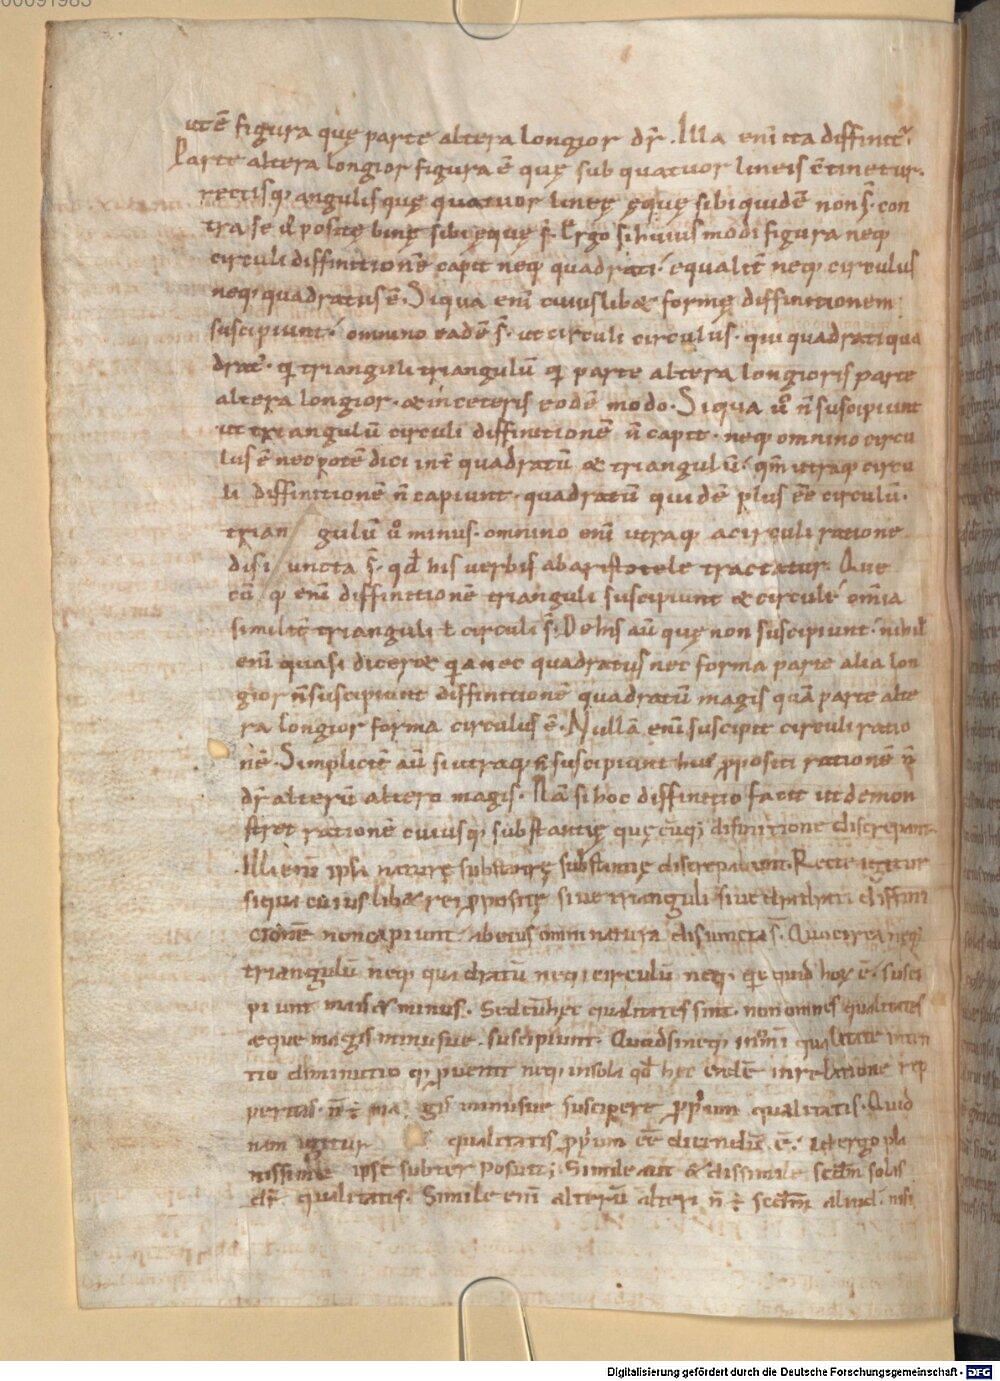 00091983
utē figura quę parte altera longior dr̄. Illa enī ita diffinit̄.
Parte altera longior figura ē quę sub quatuor lineis c̄tinetur.
rectisq; angulis quę quatuor lineę ęquę sibi quidē non s̄. con
tra se ū positę binę sibi ęquę s̄. Ergo si huius modi figura neq;
circuli diffinitionē capit neq; quadrati. equalit̄ neq; circulus
neq; quadratus ē. Siqua enī cuius libet formę diffinitionem
suscipiunt. omnino eadē s̄. ut circuli circulus. qui quadrati qua
drat̄. ql triangulī triangulū ql parte altera longioris parte
altera longior. & in ceteris eodē modo. Siqua ū n̄ suscipiunt
ut triangulū circuli diffinitionē n̄ capit. neq; omnino circu
lus ē nec potē dici int̄ quadratū & triangulū. qm̄ utraq; circu
li diffinitionē n̄ capiunt. quadratū quidē plus eē circulū.
trian gulū ū minus. omnino enī utraq; a circuli ratione
disi uncta s̄. qd̄ his verbis ab aristotele tractatur. Que
cū q; enī diffinitionē trianguli suscipiunt & circuli. om̄ia
similit̄ trianguli ł circuli s̄. De his aū quę non suscipiunt. nihil
enī quasi diceret quia nec quadratus nec forma parte alia lon
gior n̄ suscipiunt diffinitionē quadratū magis quā parte alte
ra longior forma circulus ē. Nullā enī suscipit circuli ratio
nē. Simplicit̄ aū si utraq; n̄ suscipiunt hui' ppositi rationē n̄
dr̄ alterū altero magis. Nā si hoc diffinitio facit ut demon
stret rationē cuiusq; substantię quęcūq; difinitione discrepant.
Illi enī ipsi naturę substantię discrepabunt. Recte igitur
siqua cuius libet rei ppositę sive trianguli sive quadrati diffini
cionē non capiunt ab eius omni natura disiuncta s̄. Quocirca neq;
triangulū neq; quadratū neq; circulū neq; quid hoꝝ ē. susci
piunt magis & minus. Sed cū hęc qualitates sint. non omnes qualitates
æque magis minusue. suscipiunt. Quod si neq; in om̄i qualitate inten
tio diminutio q; puenit neq; in sola qd̄ hęc eadē in relatione rep
peritas. n̄ ē ma gis minusue suscipere pprium qualitatis. Quid
nam igitur qualitatis pprium eē dicendū ē. id ergo pla
nissime ipse subter posuit; Simile aut & dissimile scdm̄ solas
dr̄ qualitates. Simile enī alterū alteri n̄ ē scdm̄ aliud. nisi
Digitalisierung gefördert durch die Deutsche Forschungsgemeinschaft - DFG